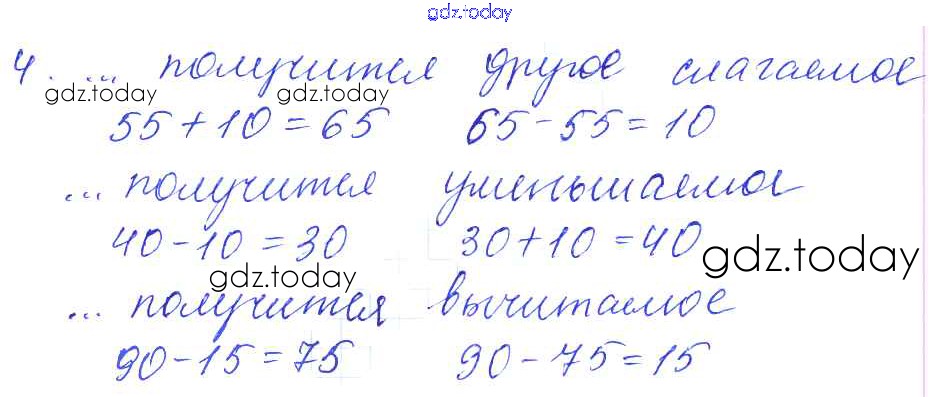 gdz.today
4. ... получится другое слагаемое
gdz.today gdz.today
55 + 10 = 65 65 - 55 = 10
... получится уменьшаемое
40 - 10 = 30 30 + 10 = 40
gdz.today gdz.today
... получится вычитаемое
90 - 15 = 75 90 - 75 = 15